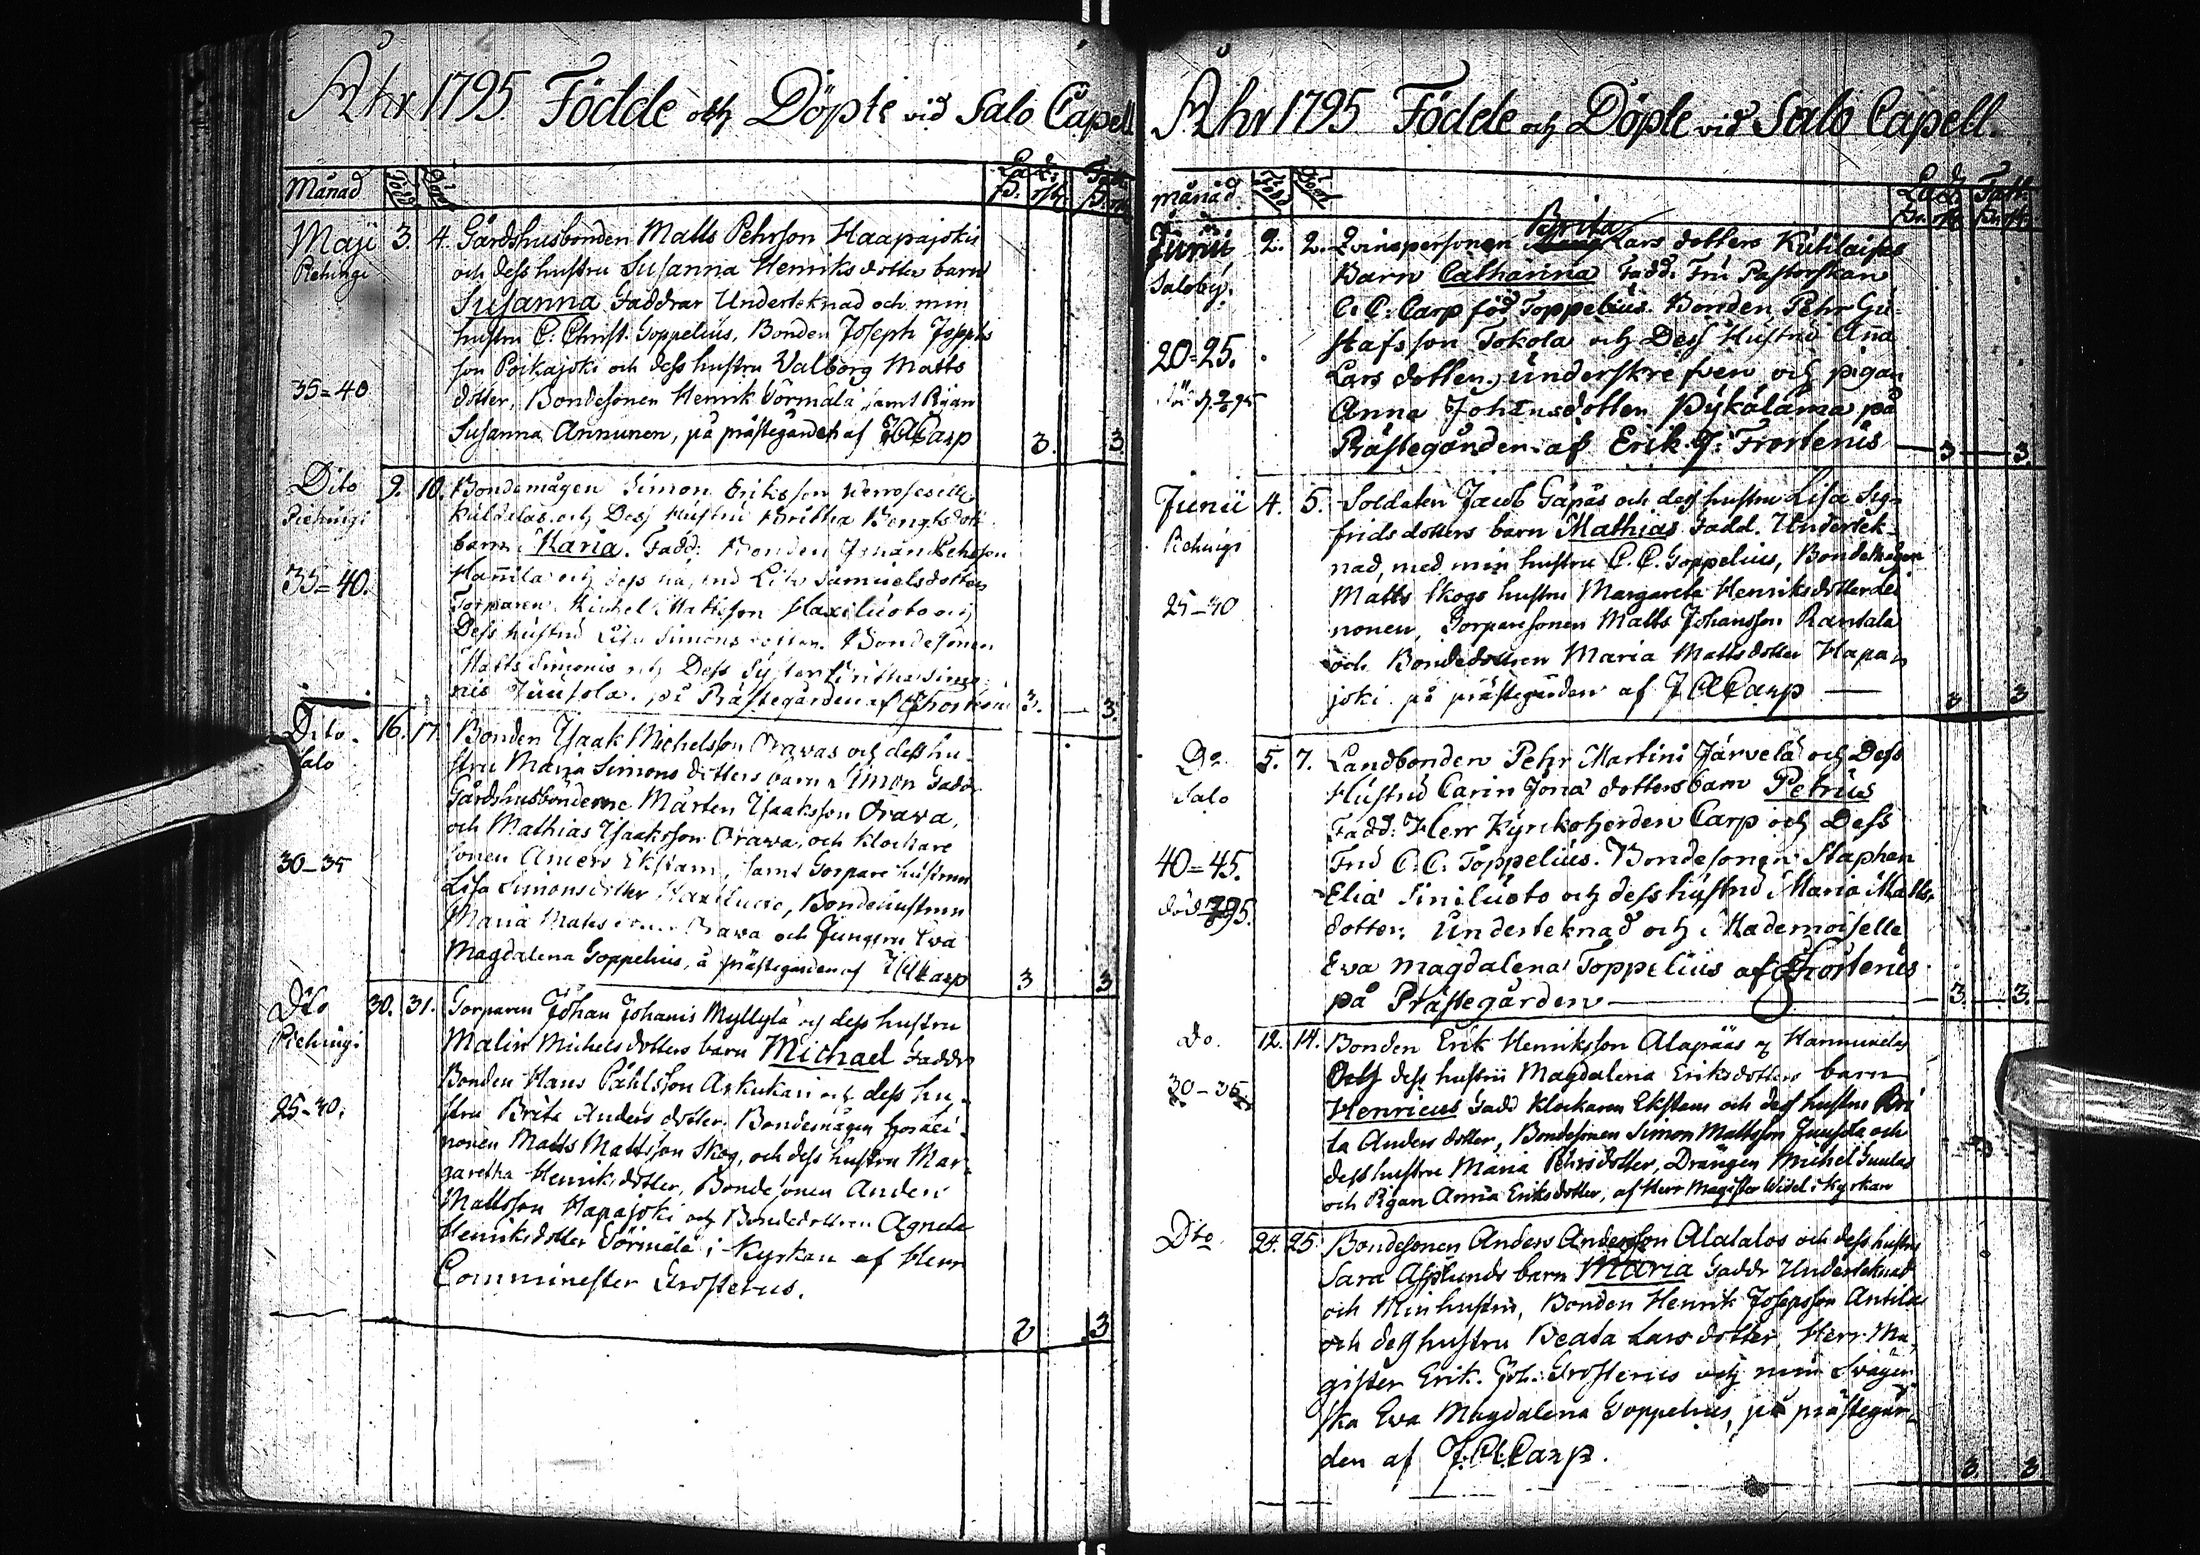 Åhr 1795 Födde och Döpte vid Salo Capell
Månad Född Döpt
Maji 3. 4. Gårdshusbonden Matts Pehrson Haapajokis
Piehingi och dess hustru Susanna Henriksdotters barn
Susanna Faddrar Underteknad och min
hustru C. Christ. Toppelius, Bonden Joseph Josephs
son Poikajoki och dess hustru Valborg Matts
35=40 dotter, Bondesonen Henrik Sörmälä samt Pigan
Susanna Annunen, på prästegården af JACarp 3. 3
Dito 9. 10. Bondemågen Simon Eriksson
Piehingi och Dess Hustru Britha Bengtsdott
barn Maria. Fadd: Bonden Johan Pehrsson
Hannila och dess Samuelsdotter
35=40. Torparen Michel Mattsson Haxiluoto och
Dess hustru Lisa Simons dotter. Bondesonen
Matts Simonis och Dess Syster Britha Simo-
nis Juusola. på Prästegården af 3. 3.
Dito. 16. 17. Bonden Isaak Michelsson Orawas och dess hu-
Salo stru Maria Simons dotters barn Simon Faddr
Gårdshusbönderne Mårten Isaaksson Orava,
och Mathias Isaaksson Orawa, och klockare
30-35 sonen Anders Ekstam, samt Torpare hustrun
Lisa Simonsdotter Haxiluoto, Bondehustrun
Maria Mattsdotter Orawa och Jungfru Eva
Magdalena Toppelius, å prästegården af JACarp 3 3
Dito 30. 31. Torparen Johan Johanis Myllylä och dess hustru
Piehingi Malin Michelsdotters barn Michael Faddr
Bonden Hans Påhlsson Arkukari och dess hu-
25-30. stru Brita Anders dotter, Bondemågen
nonen Matts Mattsson Skog, och dess hustru Mar-
garetha Henriksdotter, Bondesonen Anders
Mattsson Hapajoki och Bondedottren Agneta
Henriksdotter Sörmälä i Kyrkan af Herr
Comminister Frosterus.
3 3
Åhr 1795 Födde och Döpte vid Salo Capell.
månad. Född Döpt
Junii 2. 2. Qvinspersonen Brita Lars dotters
Saloby. Barn Catharina Fadd. Fru Pastorskan
C. C. Carp föd Toppelius. Bonden Pehr Gu-
20=25. stafsson Tokola och Dess Hustru Anna
Lars dotter, underskrefven och pigan
Anna Johansdotter Pykäläma på
Prästegården af Erik J: Frosterus 3 3.
Junii 4. 5. Soldaten Jacob Gåpås och dess hustru Lisa Sig-
Piehingi frids dotters barn Mathias Fadd. Undertek-
nad, med min hustru C. C. Toppelius, Bondemågen
25-30 Matts Skogs hustru Margareta Henriksdotter
nonen, Torparesonen Matts Johansson Rantala
och Bondedottren Maria Mattsdotter Hapa-
joki på prästegården af JACarp 3 3
Do. 5. 7. Landbonden Pehr Martini Järvelä och Dess
Salo Hustru Carin Jona dotters barn Petrus
Fadd: Herr Kyrkoherden Carp och Dess
40=45. Fru C. C. Toppelius. Bondesonen Staphan
Elia Siniluoto och dess hustru Maria Matts-
död 795. dotter, Underteknad och Mademoiselle
Eva Magdalena Toppelius af Frosterus
på Prästegården 3. 3.
Do. 12. 14. Bonden Erik Henriksson Alapääs
30-35 Och dess hustru Magdalena Eriksdotters barn
Henricus Fadd Klockaren Ekstam och dess hustru Bri
ta Anders dotter, Bondesonen Simon Mattsson Juusola och
dess hustru Maria Pehrsdotter, Drängen Michel
och Pigan Anna Eriksdotter, af Herr Magister Widel i Kyrkan
Dto. 24. 25. Bondesonen Anders Andersson Alatalos och dess hustru
Sara Asplunds barn Maria Faddr Underteknad
och Min hustru, Bonden Henrik Josepsson Antila
och dess hustru Beata Lars dotter Herr Ma-
gister Erik. Joh: Frosterus och min Svägern
ska Eva Magdalena Toppelius, på prästegår-
den af J.A.Carp. 3 3